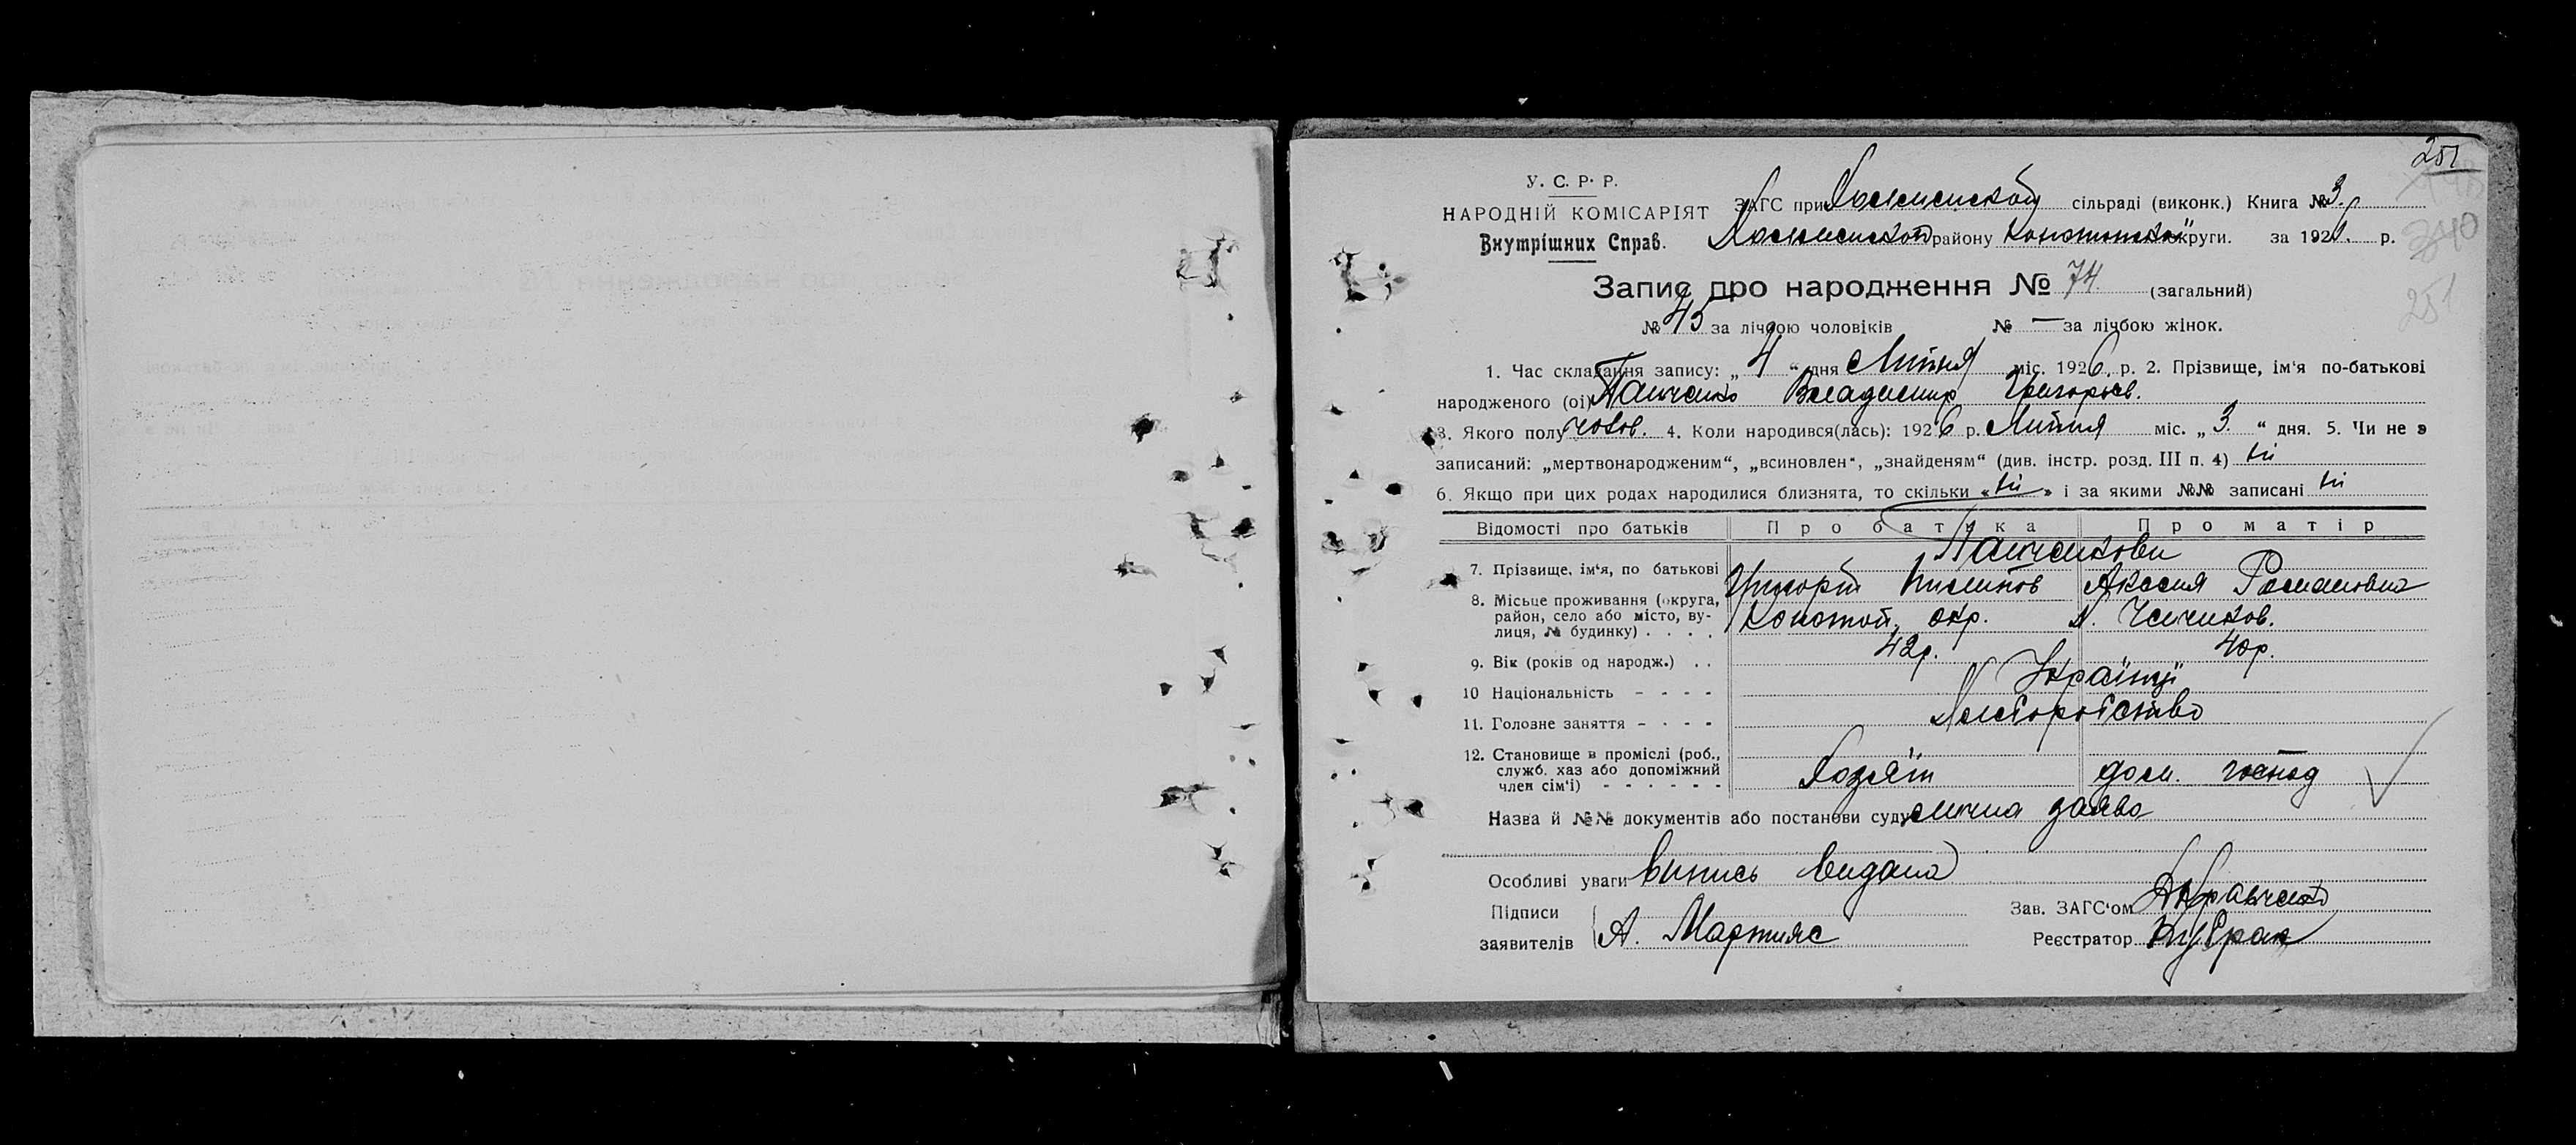 251
У. С. Р. Р.
НАРОДНІЙ КОМІСАРІЯТ
Внутрішних Справ.
ЗАГС при сільраді (виконк.) Книга № 3.
району Конотопської округи. за 1926. р.
340
251
Запис про народження № 74 (загальний)
№ 45 за лічбою чоловіків № — за лічбою жінок.
1. Час складання запису: „ 4 “ дня Липня міс. 1926. р. 2. Прізвище, ім‘я по-батькові
народженого (ої) Панченко Владимир Григорьев.
3. Якого полу чолов. 4. Коли народився(лась): 1926 р. Липня міс. „ 3. “ дня. 5. Чи не э
записаний: „мертвонародженим“, „всиновлен“, „знайденям“ (див. інстр. розд. III п. 4) ні
6. Якщо при цих родах народилися близнята, то скільки « ні » і за якими №№ записані ні
Відомості про батьків Про батька Про матір
Панченкови
7. Прізвище, ім‘я, по батькові Григорій Романовна
8. Місьце проживання (округа,
район, село або місто, ву-
лиця, № будинку) . . . . Конотоп. окр.
9. Вік (років од народж.) . . 42р. 40р.
10 Національність - - - - Українці
11. Головне заняття - - - - Хлiборобство
12. Становище в проміслі (роб.,
служб. хаз або допоміжний
член сім‘ї) - - - - - - Хозяїн дом. господ
Назва й №№ документів або постанови суду лична заява
Особливі уваги Випись видана
Підписи
заявителів А.
Зав. ЗАГС‘ом
Реєстратор